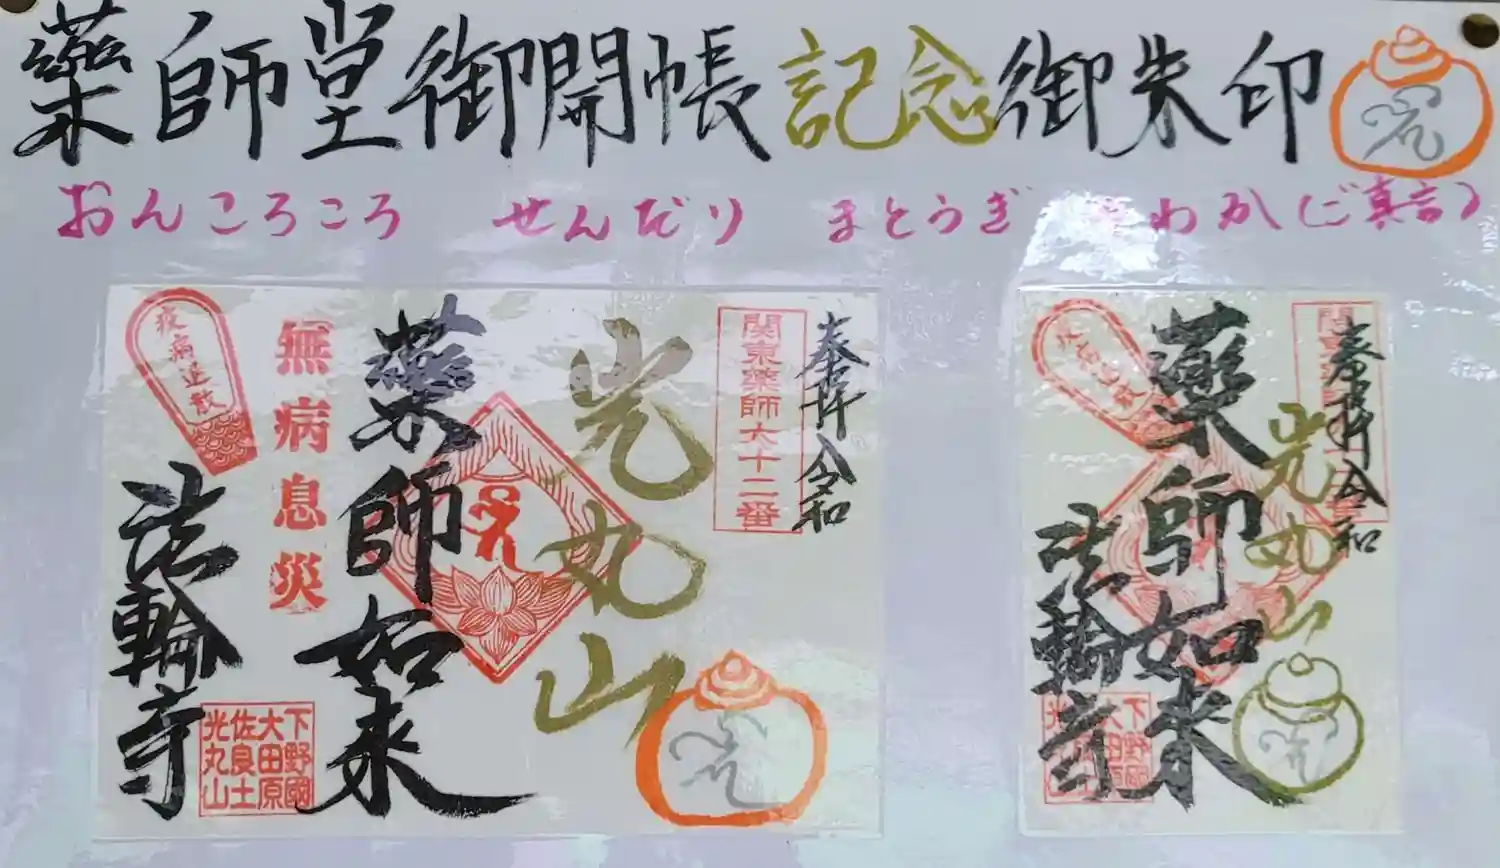 薬師堂御開帳記念御朱印
おんころころ せんだり まとうぎ わか(ご真言)
奉拝 令和
関東薬師六十二番
光丸山
薬師如来
無病息災
疫病退散
法輪寺
下野國
大田原
佐良土
光丸山
奉拝 令和
光丸山
薬師如来
法輪寺
下野國